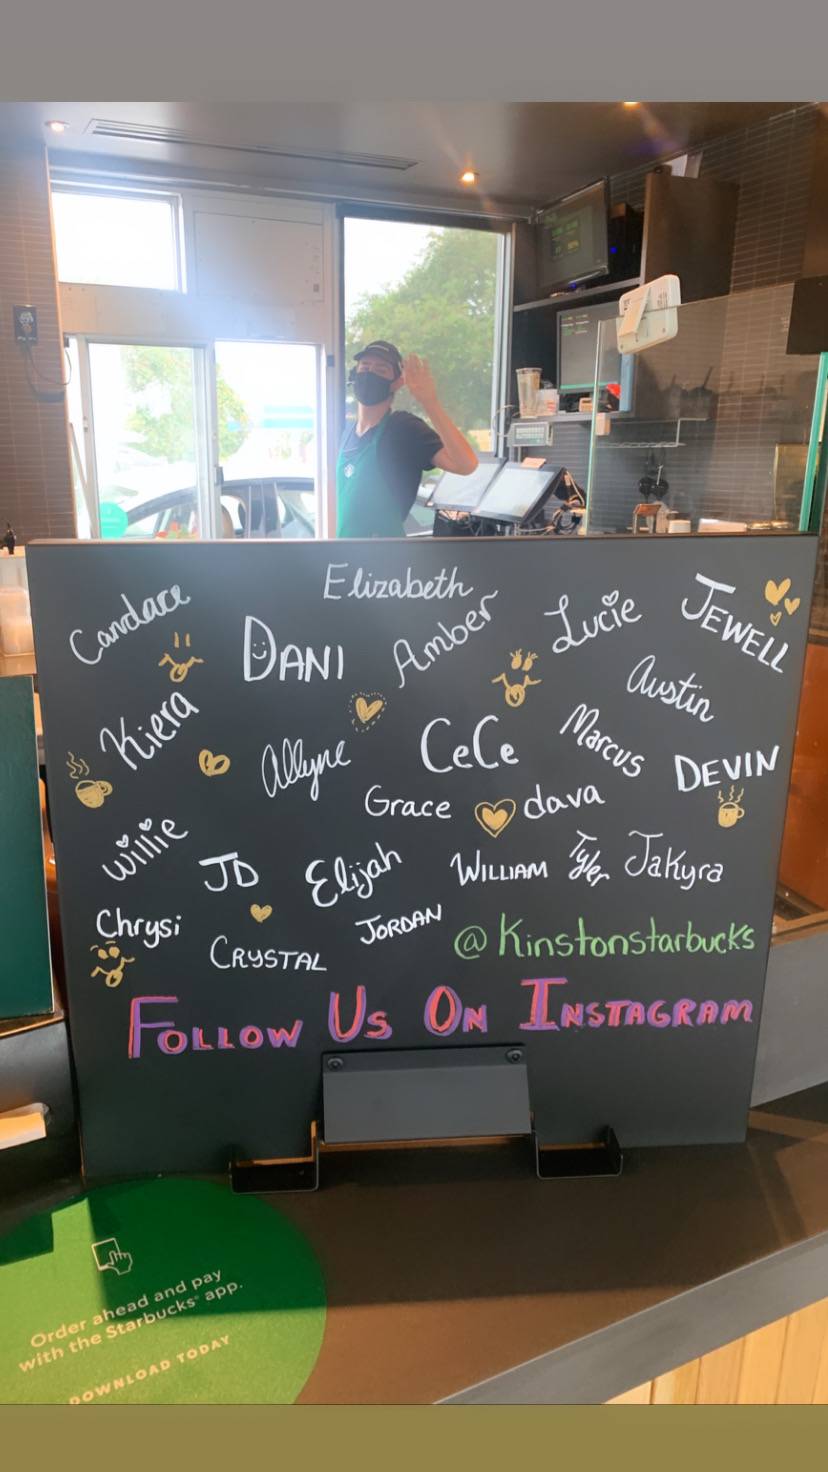 Elizabeth
Candace
DANI
Amber
Lucie
JEWELL
Kiera
Allyne
CeCe
Austin
Marcus
DEVIN
Grace
dava
Willie
JD
Elijah
WILLIAM
Tyler
Jakyra
Chrysi
CRYSTAL
JORDAN
@Kinstonstarbucks
FOLLOW US ON INSTAGRAM
Order ahead and pay
with the Starbucks® app.
DOWNLOAD TODAY